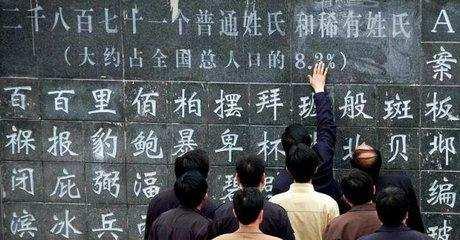 二千八百七十一个普通姓氏 和稀有姓氏 A
(大约占全国总人口的 8.2%) 案
百 百 里 佰 柏 摆 拜 班 般 斑 板
褓 报 豹 鲍 暴 卑 北 贝 邶
闭 庇 弼 碧 编
滨 冰 兵